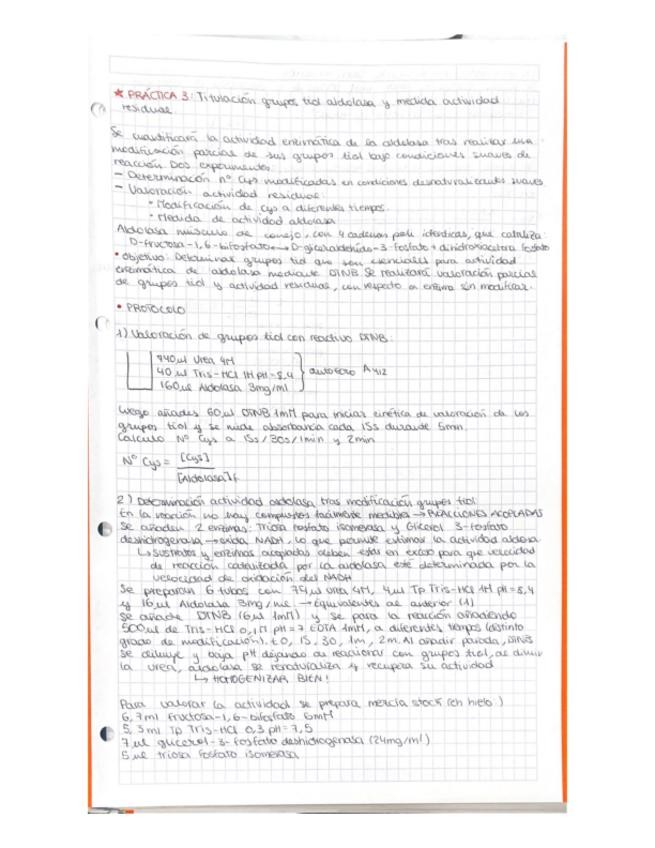 ★ PRÁCTICA 3: Titulación grupos tiol aldolasa y medida actividad
residual.
Se cuantificará la actividad enzimática de la aldolasa tras realizar una
modificación parcial de sus grupos tiol bajo condiciones suaves de
reacción. Dos experimentos:
- Determinación nº Cys modificadas en condiciones desnaturalizantes suaves
- Valoración actividad residual:
• Modificación de Cys a diferentes tiempos.
• Medida de actividad aldolasa
Aldolasa músculo de conejo, con 4 cadenas poli idénticas, que cataliza:
D-fructosa-1,6-bifosfato ↔ D-gliceraldehído-3-fosfato + dihidroxiacetona fosfato
• Objetivo: Determinar grupos tiol que son esenciales para actividad
enzimática de aldolasa mediante DTNB. Se realizará valoración parcial
de grupos tiol y actividad residual, con respecto a enzima sin modificar.
• PROTOCOLO
1) Valoración de grupos tiol con reactivo DTNB:
740 µl Urea 4M
40 µl Tris-HCl 1M pH=8,4 autocero A412
160 µl Aldolasa 3mg/ml
Luego añades 60 µl DTNB 1mM para iniciar cinética de valoración de los
grupos tiol y se mide absorbancia cada 15s durante 5min.
Calculo Nº Cys a 15s/30s/1min y 2min
Nº Cys = [Cys]
[Aldolasa]f
2) Determinación actividad aldolasa tras modificación grupos tiol:
En la reacción no hay compuestos fácilmente medibles → REACCIONES ACOPLADAS
Se añaden 2 enzimas: Triosa fosfato isomerasa y Glicerol 3-fosfato
deshidrogenasa → oxida NADH, lo que permite estimar la actividad aldolasa
↳ Sustratos y enzimas acopladas deben estar en exceso para que velocidad
de reacción catalizada por la aldolasa esté determinada por la
velocidad de oxidación del NADH
Se preparan 6 tubos con 74 µl Urea 4M, 4 µl Tp Tris-HCl 1M pH=8,4
y 16 µl Aldolasa 3mg/ml → Equivalentes al anterior (1)
Se añade DTNB (6 µl 1mM) y se para la reacción añadiendo
500 µl de Tris-HCl 0,1M pH=7 EDTA 1mM, a diferentes tiempos (distinto
grado de modificación). t0, 15, 30, 1m, 2m. Al añadir parada, DTNB
se diluye y baja pH dejando de reaccionar con grupos tiol, al diluir
la urea, aldolasa se renaturaliza y recupera su actividad
↳ HOMOGENIZAR BIEN!
Para valorar la actividad se prepara mezcla stock (en hielo):
6,7ml Fructosa-1,6-bifosfato 6mM
5,3ml Tp Tris-HCl 0,3 pH=7,5
7 µl glicerol-3-fosfato deshidrogenasa (24mg/ml)
5 µl triosa fosfato isomerasa